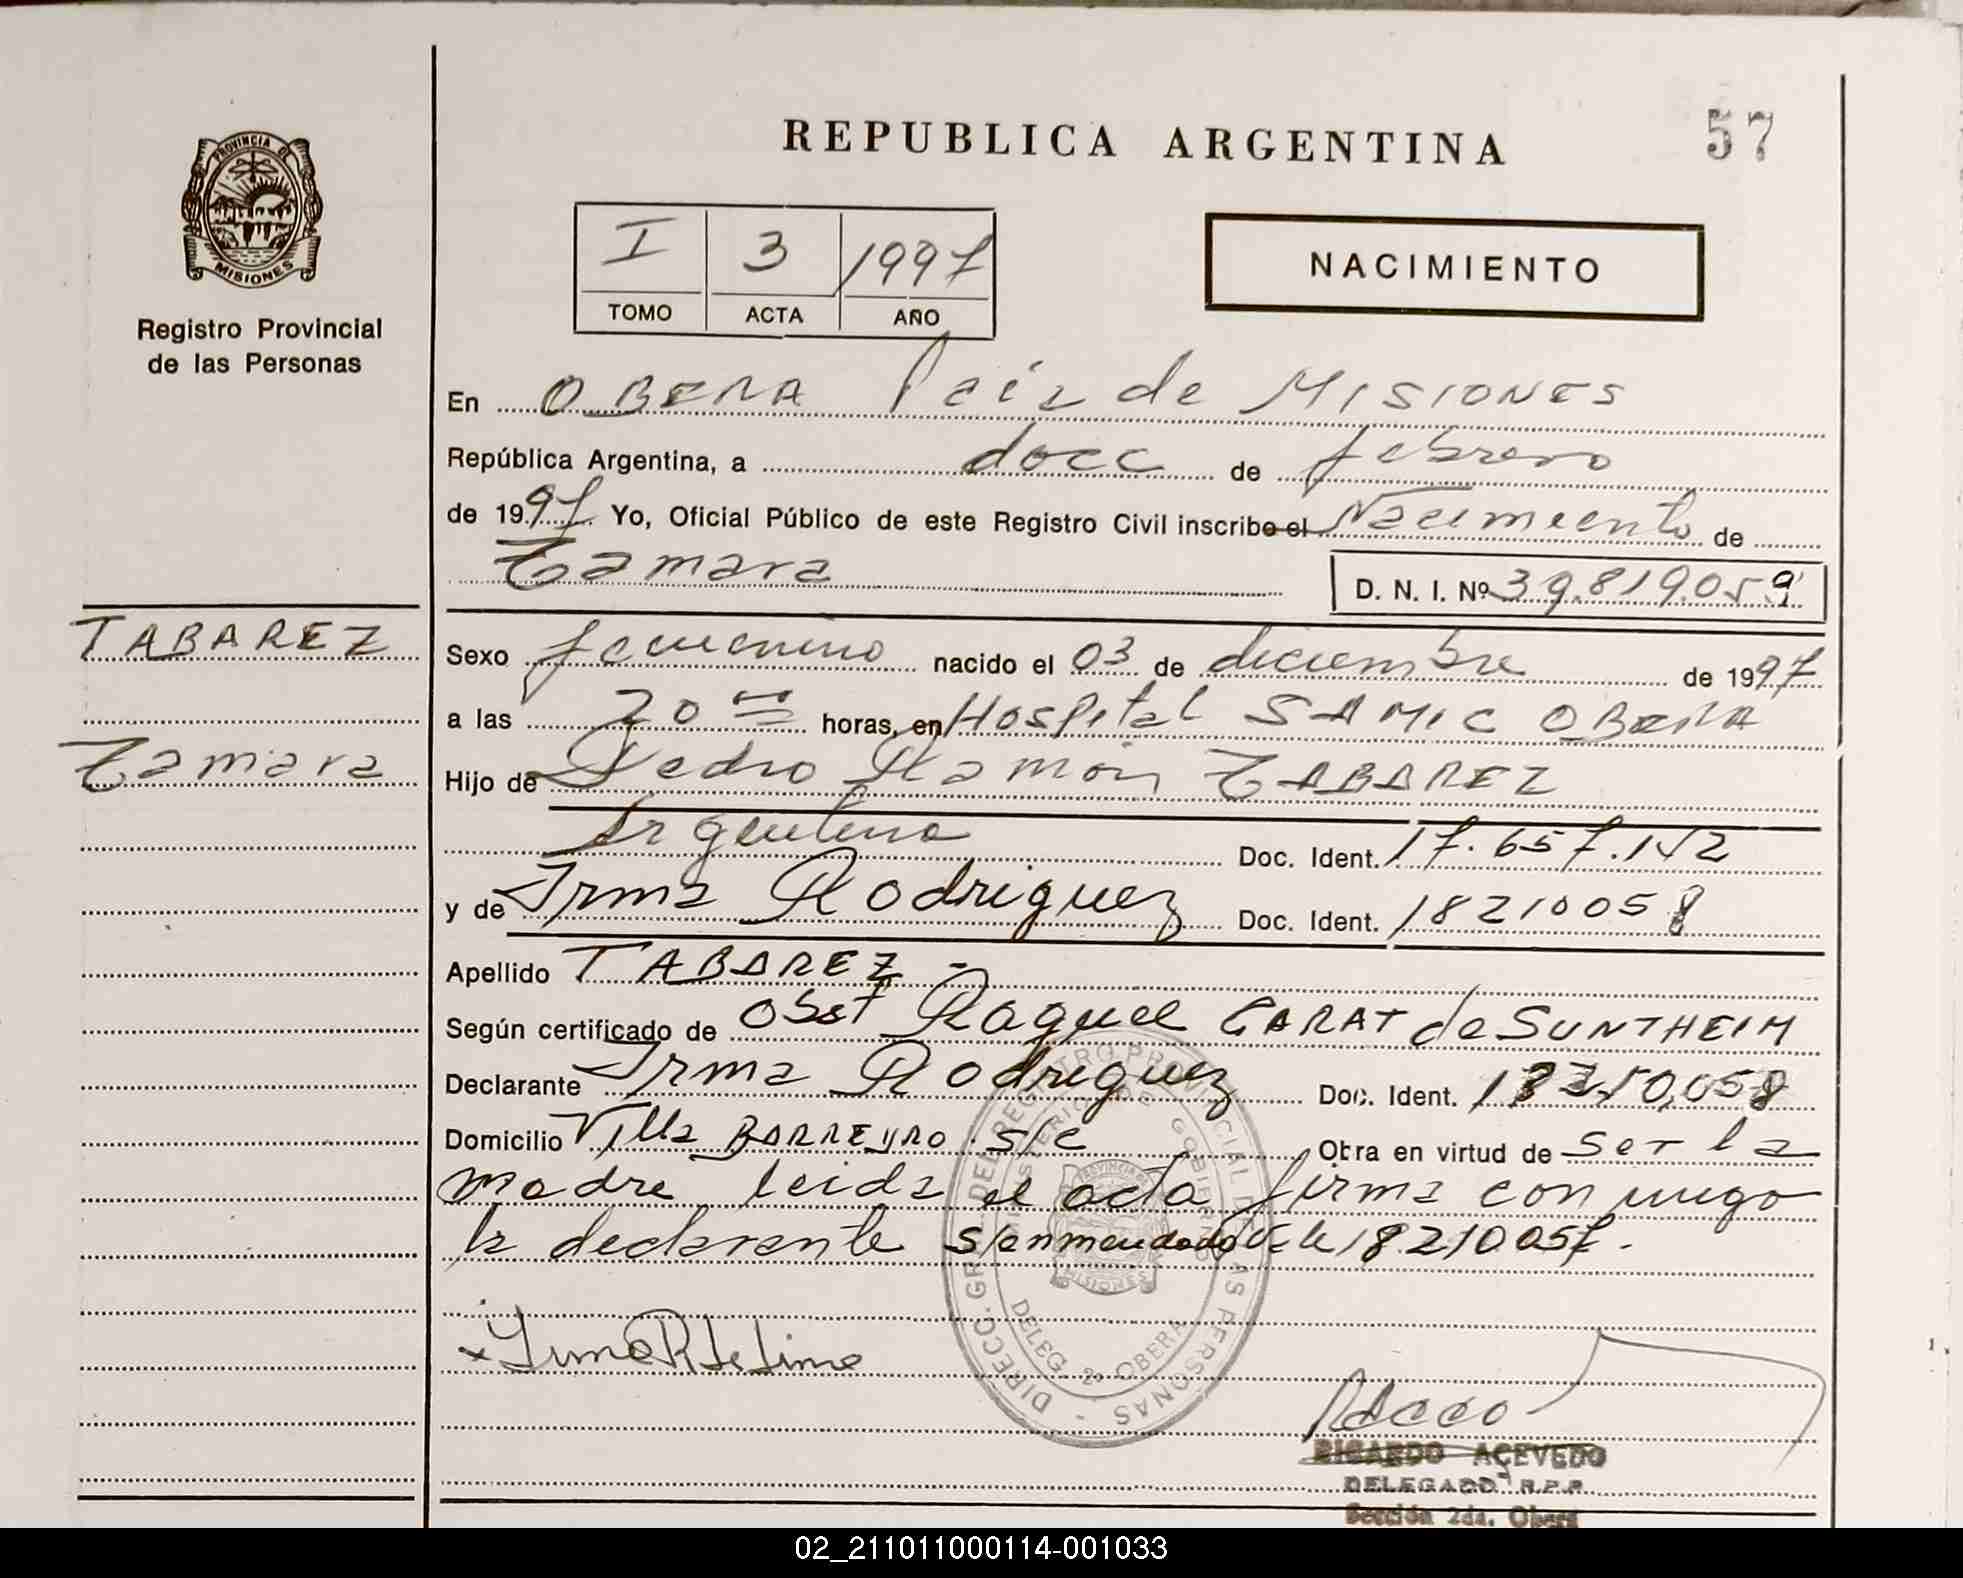 REPUBLICA ARGENTINA
57
PROVINCIA DE
MISIONES
Registro Provincial
de las Personas
I 3 1997
TOMO ACTA AÑO
NACIMIENTO
En OBERA Pcia de MISIONES
República Argentina, a doce de febrero
de 1997 Yo, Oficial Público de este Registro Civil inscribo el Nacimiento de
Tamara
D. N. I. Nº 39.819.059
TABAREZ
Tamara
Sexo femenino nacido el 03 de diciembre de 1997
a las 20 horas, en Hospital SAMIC OBERA
Hijo de Pedro Ramón TABAREZ
Argentina Doc. Ident. 17.657.152
y de Irma Rodriguez Doc. Ident. 18210058
Apellido TABAREZ -
Según certificado de Obst Raquel CARAT de SUNTHEIM
Declarante Irma Rodriguez Doc. Ident.
Domicilio Villa BARREYRO. S/C Obra en virtud de Ser la
madre leida el acta firma conmigo
la declarante S/enmendado Vale 18.210057.
DIRECC. GRAL. DEL REGISTRO PROVINCIAL DE LAS PERSONAS -
MINISTERIO DE GOBIERNO
PROVINCIA
MISIONES
DELEG. 2º OBERA
RICARDO ACEVEDO
DELEGADO R.P.P.
Sección 2da. Oberá
02_211011000114-001033